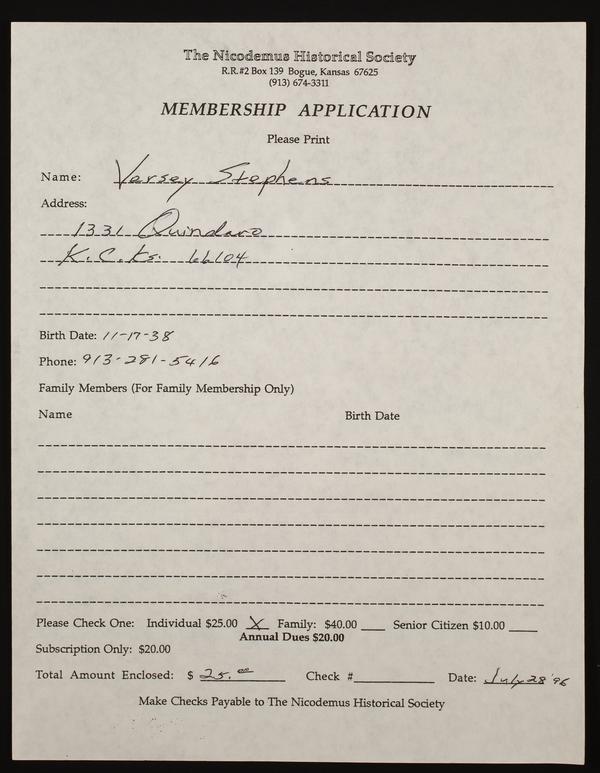 The Nicodemus Historical Society
R.R.#2 Box 139 Bogue, Kansas 67625
(913) 674-3311
MEMBERSHIP APPLICATION
Please Print
Name: Versey Stephens
Address:
1331 Quindaro
K.C. Ks. 66104
Birth Date: 11-17-38
Phone: 913-281-5416
Family Members (For Family Membership Only)
Name Birth Date
Please Check One: Individual $25.00 X Family: $40.00 ___ Senior Citizen $10.00 ___
Annual Dues $20.00
Subscription Only: $20.00
Total Amount Enclosed: $ 25.00 Check # ___ Date: July 28 '96
Make Checks Payable to The Nicodemus Historical Society